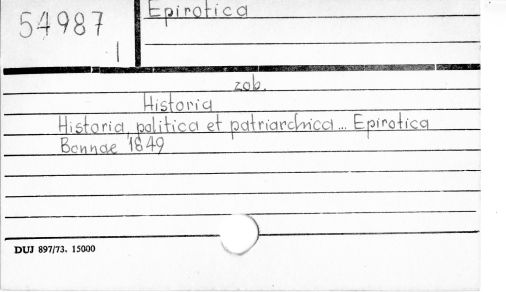 54987
I
Epirotica
zob.
Historia
Historia politica et patriarchica... Epirotica
Bonnae 1849
DUJ 897/73. 15000